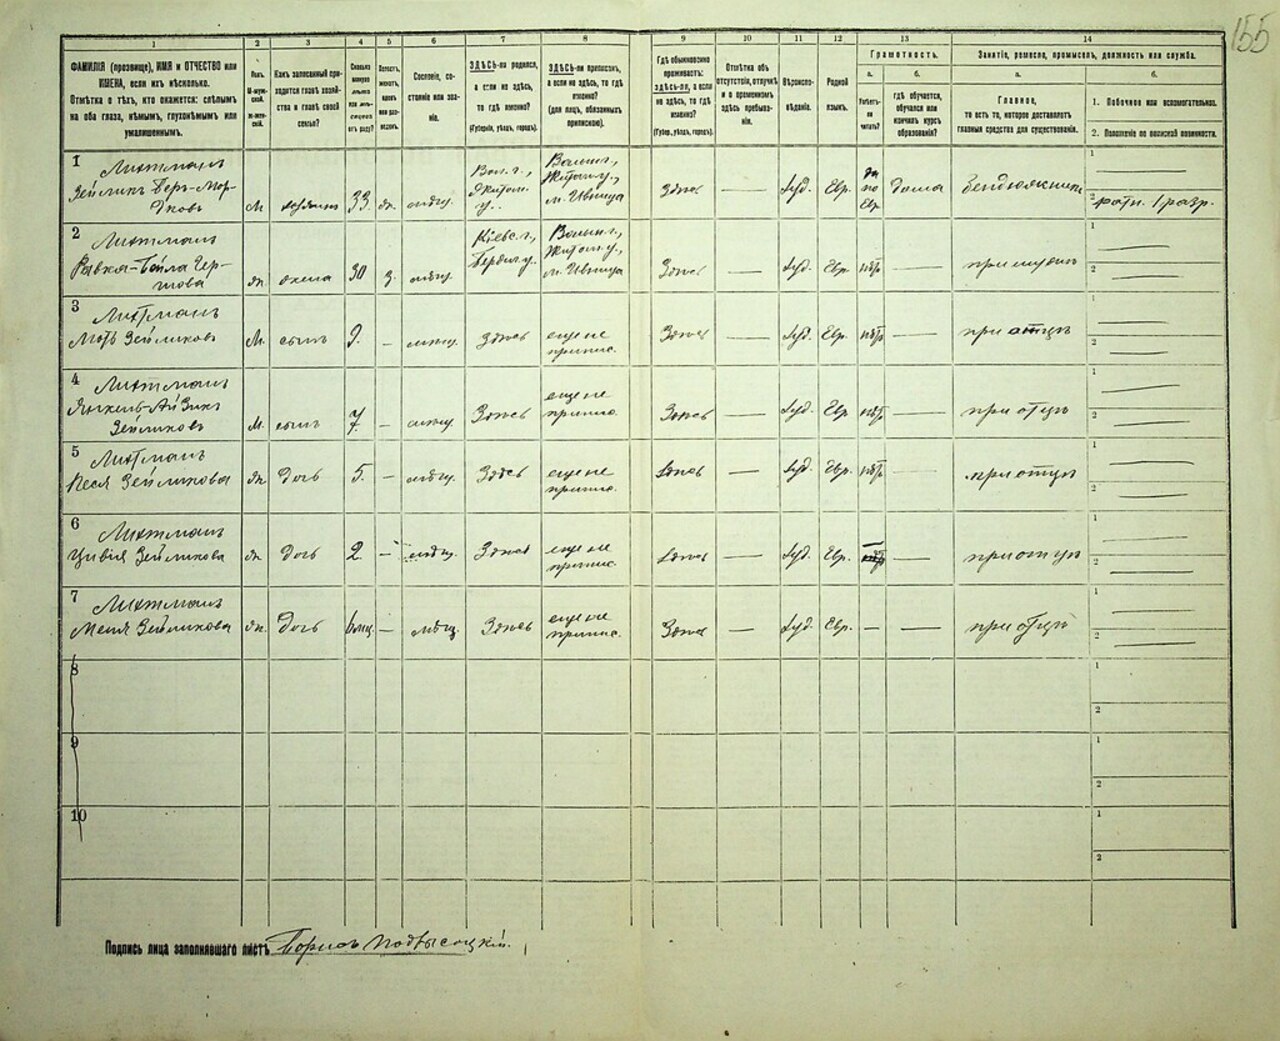 155
1 2 3 4 5 6 7 8 9 10 11 12 13 14
ФАМИЛІЯ (прозвище), ИМЯ и ОТЧЕСТВО или
ИМЕНА, если ихъ нѣсколько.
Отмѣтка о тѣхъ, кто окажется: слѣпымъ
на оба глаза, нѣмымъ, глухонѣмымъ или
умалишеннымъ.
Полъ.
М-муж-
ской.
Ж-жен-
скій.
Какъ записанный при-
ходится главѣ хозяй-
ства и главѣ своей
семьи?
Сколько
минуло
лѣтъ
или мѣ-
сяцевъ
отъ роду?
Холостъ,
женатъ,
вдовъ
или раз-
веденъ.
Сословіе, со-
стояніе или зва-
ніе.
ЗДѢСЬ-ли родился,
а если не здѣсь,
то гдѣ именно?
(Губернія, уѣздъ, городъ).
ЗДѢСЬ-ли приписанъ,
а если не здѣсь, то гдѣ
именно?
(для лицъ, обязанныхъ
припискою).
Гдѣ обыкновенно
проживаетъ:
здѣсь-ли, а если
не здѣсь, то гдѣ
именно?
(Губер., уѣздъ, городъ).
Отмѣтка объ
отсутствіи, отлучкѣ
и о временномъ
здѣсь пребыва-
ніи.
Вѣроиспо-
вѣданіе.
Родной
языкъ.
Грамотность.
а.
Умѣетъ-
ли
читать?
б.
гдѣ обучается,
обучался или
кончилъ курсъ
образованія?
Занятіе, ремесло, промыселъ, должность или служба.
а.
Главное,
то есть то, которое доставляетъ
главныя средства для существованія.
б.
1. Побочное или вспомогательное.
2. Положеніе по воинской повинности.
1 Лихтманъ
Зейликъ Беръ-Мор-
дковъ
М хозяинъ 33 ж. мѣщ. Вол. г., Житом. у. Волын. г., Житом. у., м. Ивница Здѣсь — Іуд. Евр. да по Евр. дома 1 — 2 ратн. 1 разр.
2 Лихтманъ
Ривка-Бейла Гер-
шова
ж. жена 30 з. мѣщ. Кіевс. г., Бердич. у. Волын. г., Житом. у., м. Ивница Здѣсь — Іуд. Евр. нѣтъ — при мужѣ 1 — 2 —
3 Лихтманъ
Зейликовъ
М. сынъ 9. — мѣщ. здѣсь еще не приписс. Здѣсь — Іуд. Евр. нѣтъ — при отцѣ 1 — 2 —
4 Лихтманъ
Янкель-Айзикъ
Зейликовъ
М. сынъ 7. — мѣщ. Здѣсь еще не припис. Здѣсь — Іуд. Евр. нѣтъ — при отцѣ 1 — 2 —
5 Лихтманъ
Песя Зейликова
ж. дочь 5. — мѣщ. Здѣсь еще не припис. Здѣсь — Іуд. Евр. нѣтъ — при отцѣ 1 — 2 —
6 Лихтманъ
Цивія Зейликова
ж. дочь 2. — мѣщ. Здѣсь еще не припис. Здѣсь — Іуд. Евр. — — при отцѣ 1 — 2 —
7 Лихтманъ
Зейликова
ж. дочь 6 мц. — мѣщ. Здѣсь еще не припис. Здѣсь — Іуд. Евр. — — при отцѣ 1 — 2 —
8 1 2
9 1 2
10 1 2
Подпись лица заполнявшего листъ Борисъ Подвысоцкій.